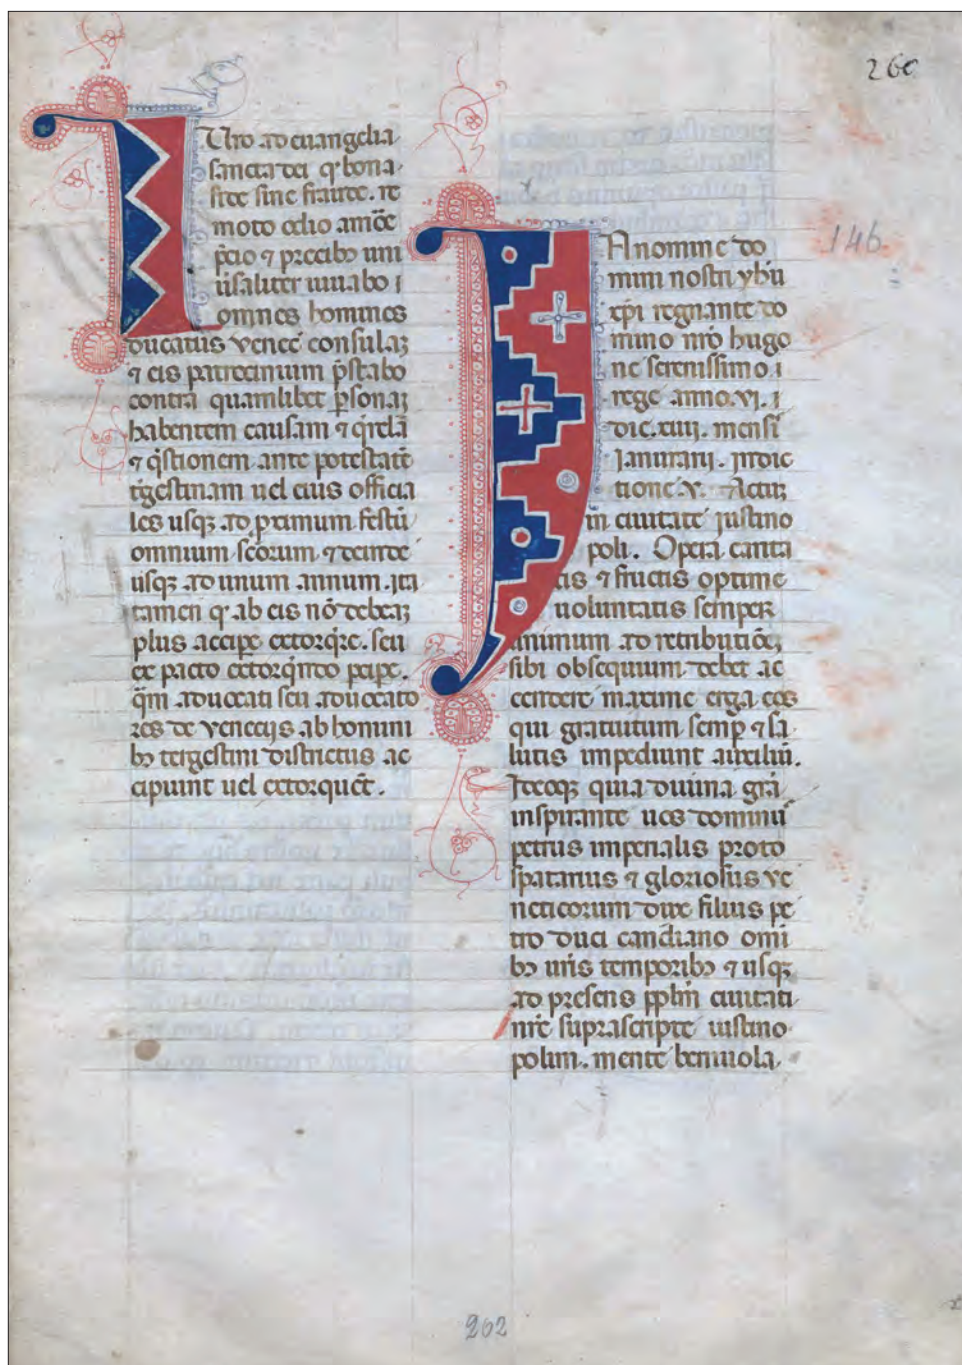 260
IUro ad euangelia
sancta dei qͥ bona
fide sine fraude. re
moto odio amōe
p̄cio ⁊ precibꝫ uni
ūsaliter iuuabo ı
omnes homines
ducatus venec̄ consulaꝫ
⁊ eis patrocinium p̄stabo
contra quamlibet ꝑsonaꝫ
habentem causam ⁊ q̄relā
⁊ q̄stionem ante potestatē
t̄gestinam uel eius officia
les usqꝫ ad primum festū
omnium scōrum ⁊ deinde
usqꝫ ad unum annum. ita
tamen qͥ ab eis nō debeaꝫ
plus accipe extorq̄re. seu
ex pacto extorq̄ndo ꝑcipe.
q̄m aduocati seu aduocato
res de veneciis ab homini
bꝫ tergestini districtus ac
cipiunt uel extorquēt.
146.
IN nomine do
mini nostri yhū
xp̄i regnante do
mino nr̄o hugo
ne serenissimo ı
rege anno. vi. ı
dic. xiiii. mensı
Ianuarij. indic
tione v. Actuꝫ
in ciuitate iustino
poli. Opera canta
tis ⁊ fructis optime
uoluntatis semper
animum ad retributiōē,
sibi obsequium debet ac
cendere maxime erga eos
qui gratuitum semꝑ ⁊ sa
lutis impediunt auxiliū.
Ideoqꝫ quia diuina grā
inspirante uos dominus
petrus imperialis proto
spatarius ⁊ gloriosus ve
neticorum dux filius pe
tro duci candiano omi
bꝫ uris temporibꝫ ⁊ usqꝫ
ad presens pplm̄ ciuitati
nr̄e suprascripte iustino
polim. mente beniuola
202